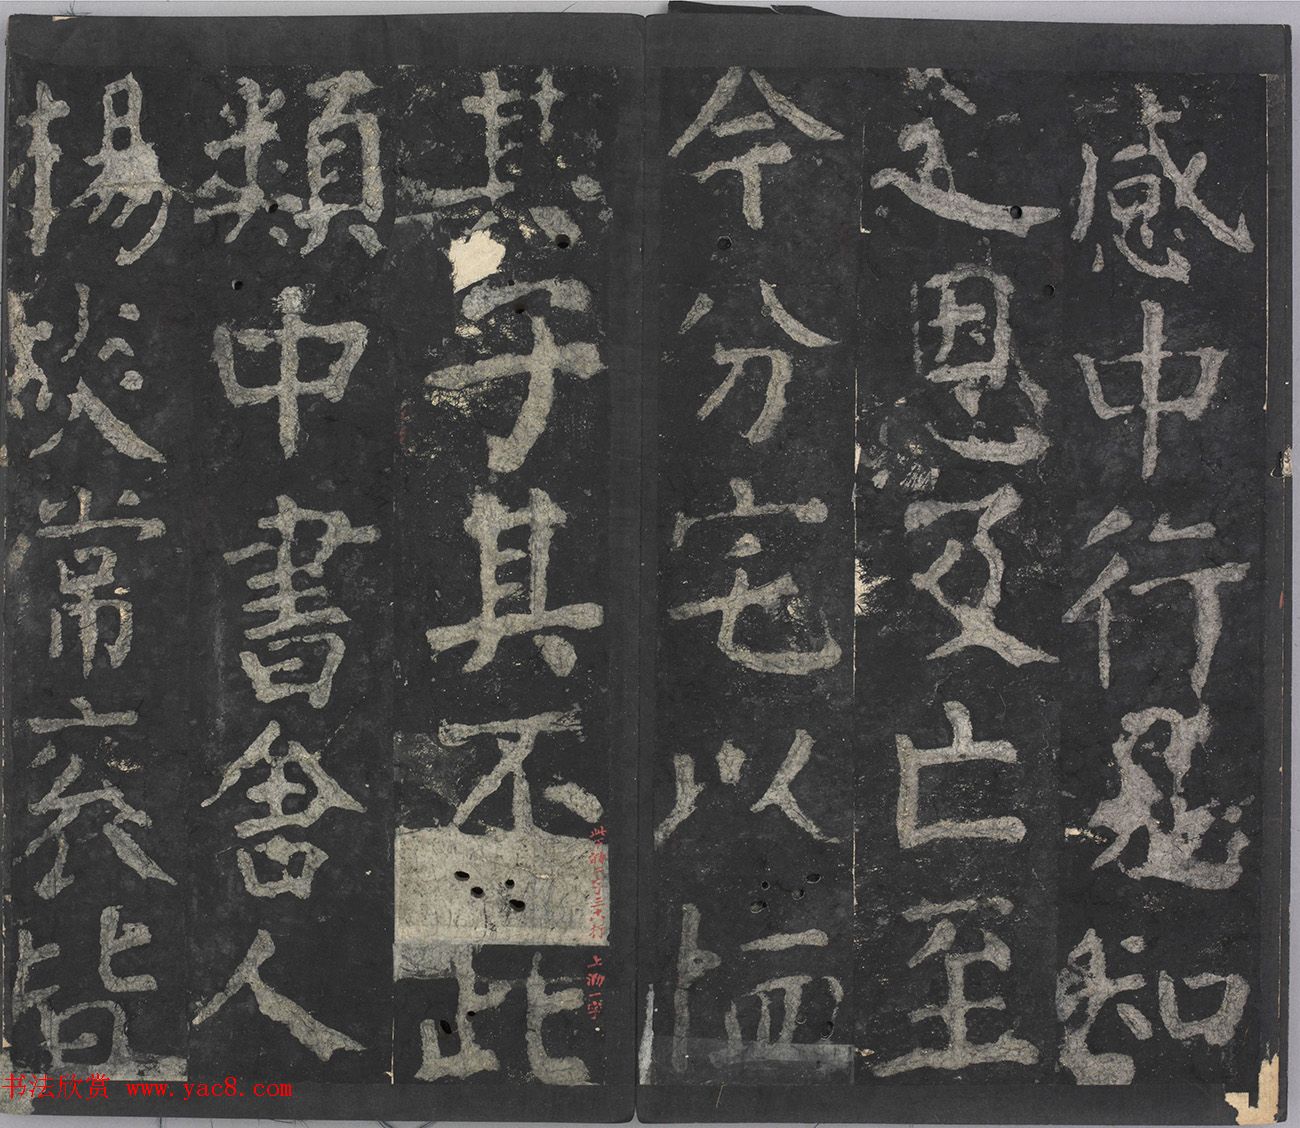 感中行見知
之恩及亡至
今分宅以恤
其子其不此
類中書舍人
楊炎常袞皆
上泐一字
书法欣赏 www.yac8.com